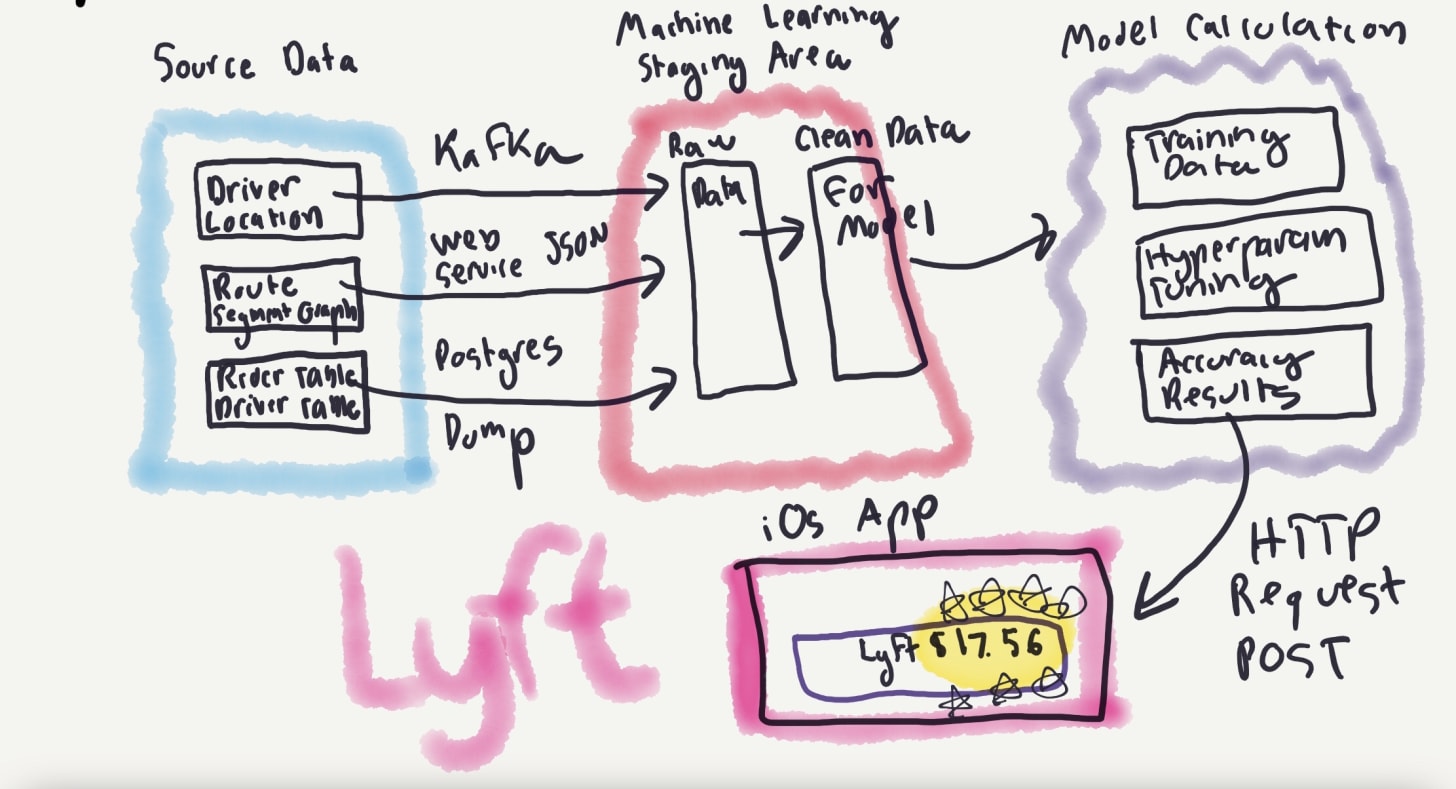 Source Data
Driver
Location
Route
Segmnt Graph
Rider Table
Driver Table
Kafka
Web
Service JSON
Postgres
Dump
Machine Learning
Staging Area
Raw
Data
Clean Data
For
Model
Model Calculation
Training
Data
Hyperparam
Tuning
Accuracy
Results
HTTP
Request
POST
iOs App
Lyft $17.56
Lyft